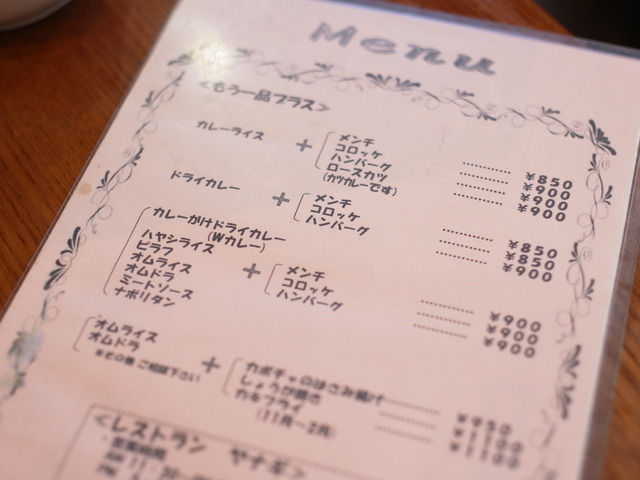 Menu
<もう一品プラス>
カレーライス + メンチ ............ ¥850
コロッケ ............ ¥900
ハンバーグ ............ ¥900
ロースカツ ............ ¥900
(カツカレーです)
ドライカレー + メンチ ............ ¥850
コロッケ ............ ¥850
ハンバーグ ............ ¥900
カレーがけドライカレー
(Wカレー)
ハヤシライス
ピラフ
オムライス
オムドラ
ミートソース
ナポリタン
+ メンチ ............ ¥900
コロッケ ............ ¥900
ハンバーグ ............ ¥900
オムライス
オムドラ
※その他 ご相談下さい
+ カボチャのはさみ揚げ ............ ¥950
しょうが焼き ............ ¥1100
カキフライ ............ ¥1100
(11月~2月)
<レストラン ヤナギ>
営業時間